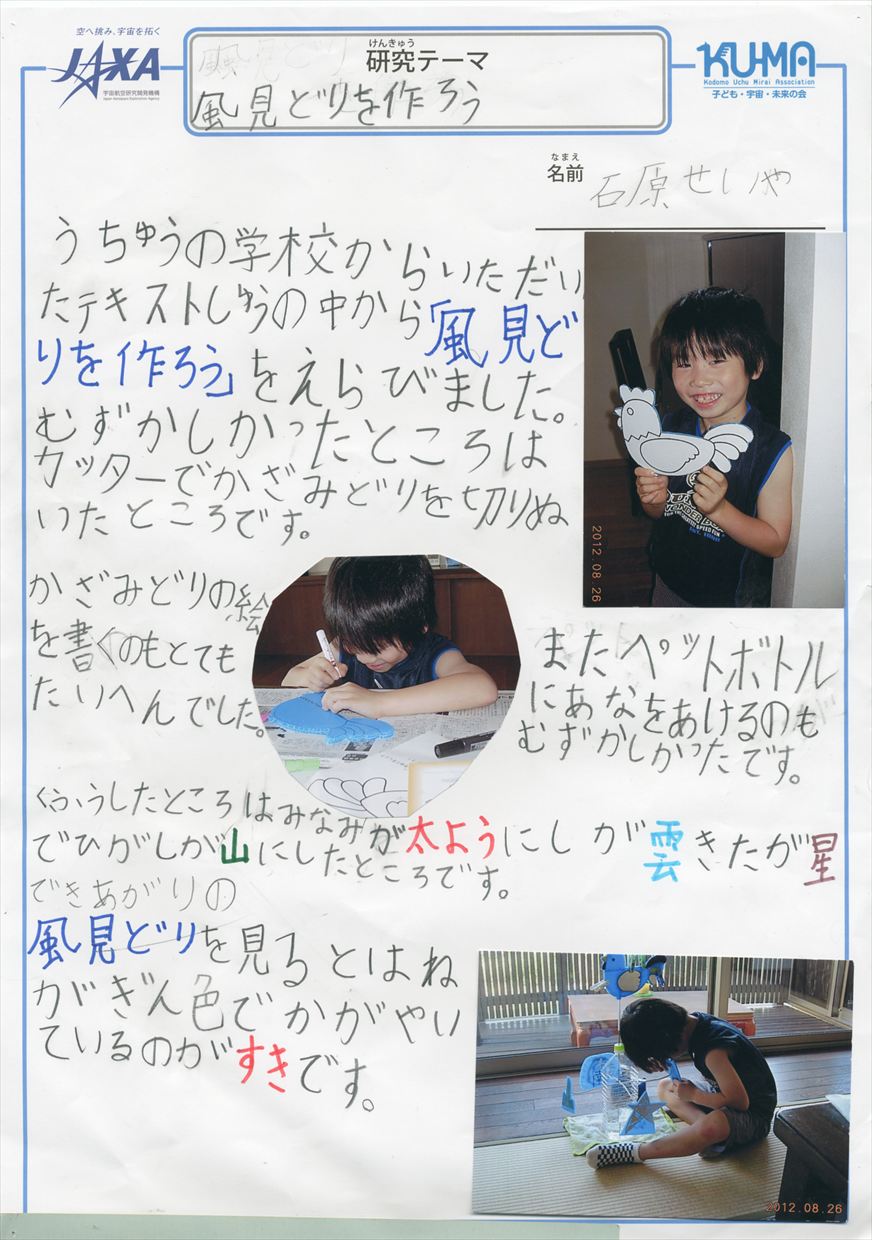 空へ挑み、宇宙を拓く
JAXA
宇宙航空研究開発機構
Japan Aerospace Exploration Agency
けんきゅう
研究テーマ
風見どりを作ろう
KU-MA
Kodomo Uchu Mirai Association
子ども・宇宙・未来の会
なまえ
名前
石原せいや
うちゅうの学校からいただい
たテキストしゅうの中から「風見ど
りを作ろう」をえらびました。
むずかしかったところは
カッターでかざみどりを切りぬ
いたところです。
2012 08 26
かざみどりの絵
を書くのもとても
たいへんでした。
またペットボトル
にあなをあけるのも
むずかしかったです。
くふうしたところはみなみが太ようにしが雲きたが星
でひがしが山にしたところです。
できあがりの
風見どりを見るとはね
がぎん色でかがやい
ているのがすきです。
2012.08.26